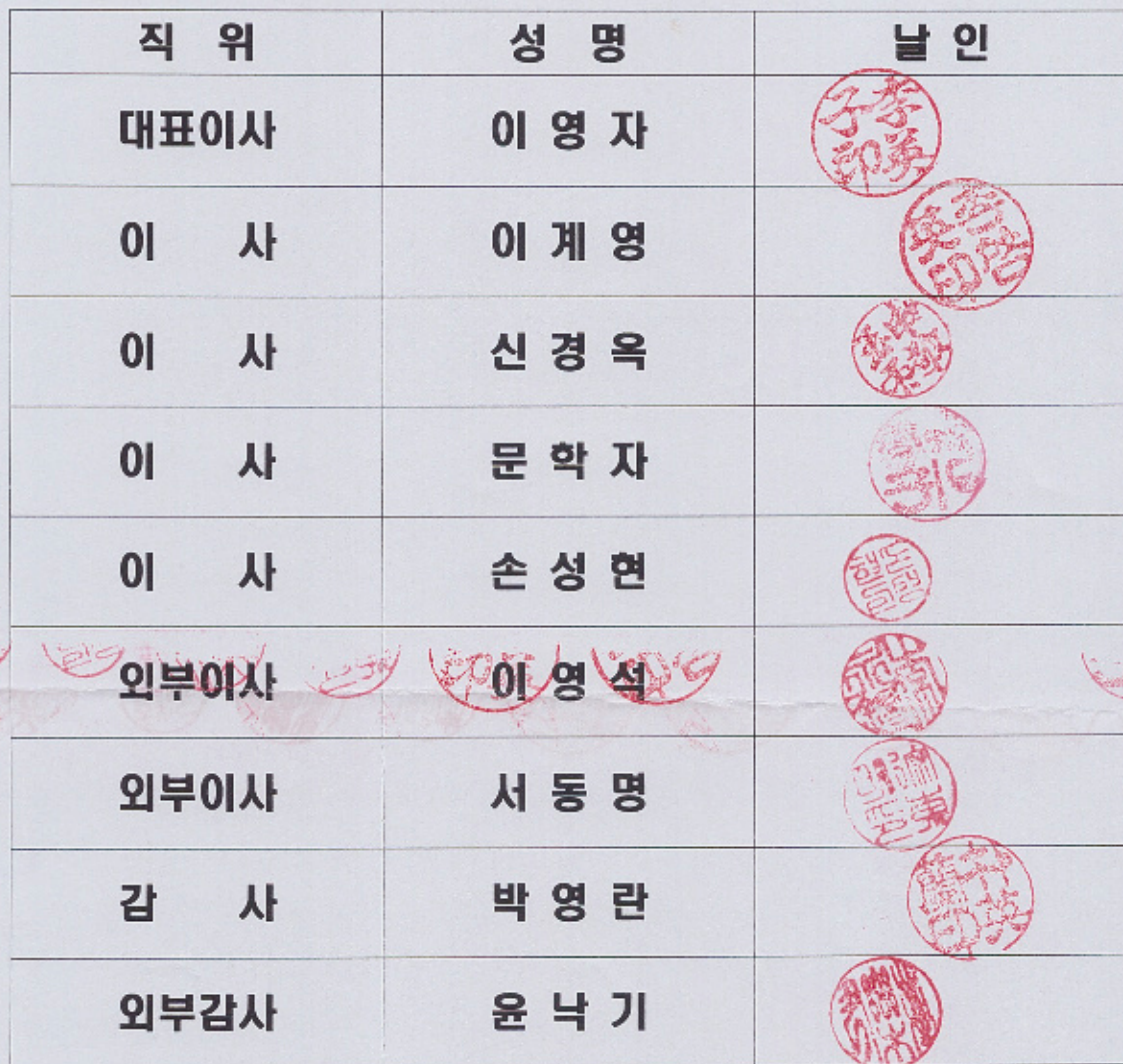 직 위 성 명 날 인
대표이사 이 영 자 李英子印
이 사 이 계 영
이 사 신 경 옥
이 사 문 학 자
이 사 손 성 현
외부이사 이 영 석
외부이사 서 동 명
감 사 박 영 란
외부감사 윤 낙 기